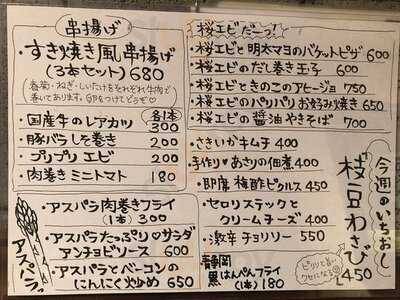 串揚げ
・すき焼き風串揚げ
(3本セット) 680
春菊・ねぎ・しいたけをそれぞれ牛肉で
巻いてあります。卵をつけてどうぞ♡
各1本
・国産牛のレアカツ 300
・豚バラしそ巻き 200
・プリプリエビ 200
・肉巻きミニトマト 180
アスパラっ
・アスパラ肉巻きフライ
(1本) 300
・アスパラたっぷり♡サラダ
アンチョビソース 600
・アスパラとベーコンの
にんにく炒め 650
桜エビだーっ!
・桜エビと明太マヨのバゲットピザ 600
・桜エビのだし巻き玉子 600
・桜エビときのこのアヒージョ 750
・桜エビのパリパリお好み焼き 650
・桜エビの醤油やきそば 700
・さきいかキムチ 400
・手作り♥あさりの佃煮 400
・即席梅酢ピクルス 450
・セロリスティックと
クリームチーズ 400
・激辛チョリソー 550
・静岡
黒はんぺんフライ
(1本) 180
今週のいちおし
枝豆わさび
450